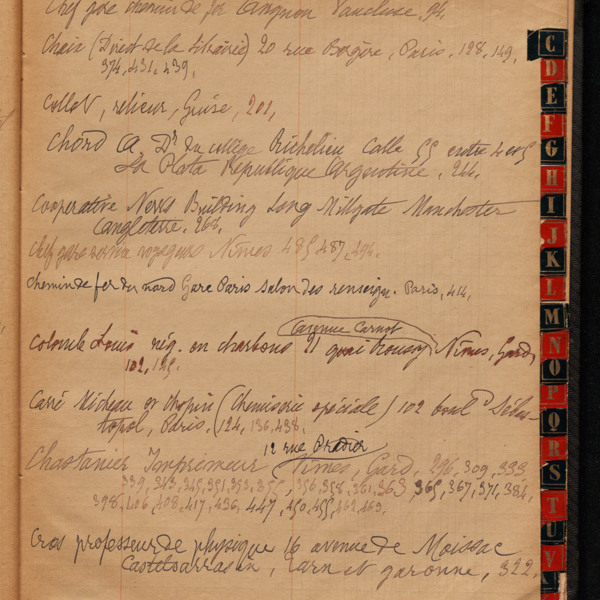 Chef gare chemin de fer Avignon Vaucluse, 94.
Chaix (Direct de la librairie) 20 rue Bergère, Paris, 128, 149,
374, 431, 439.
Collot, relieur, Guise, 201,
Chord A. Dr du collège Richelieu Calle 55 entre 4 et 5
La Plata République Argentine, 244.
Cooperative News Building Long Millgate Manchester
(angleterre, 264.
Chef gare voyageurs Nîmes 485, 487, 494.
Chemin de fer du nord Gare Paris salon des renseign. Paris, 414.
(avenue Carnot
Colomb Louis nég. en charbons 21 quai Roussy Nîmes, Gard,
102, 195.
Carré Micheau et Chopin (Chemiserie spéciale) 102 boul. Sébas-
topol, Paris, 124, 136, 438.
12 rue Pradier
Chastanier Imprimeur Nîmes, Gard, 296, 309, 333,
339, 343, 345, 351, 353, 355, 356, 358, 361, 363, 365, 367, 371, 384,
398, 406, 408, 417, 436, 447, 450, 455, 462, 469.
Cros professeur de physique 16 avenue de Moissac
Castelsarrasin, Tarn et garonne, 322.
C
D
E
F
G
H
I
J
K
L
M
N
O
P
Q
R
S
T
U
V